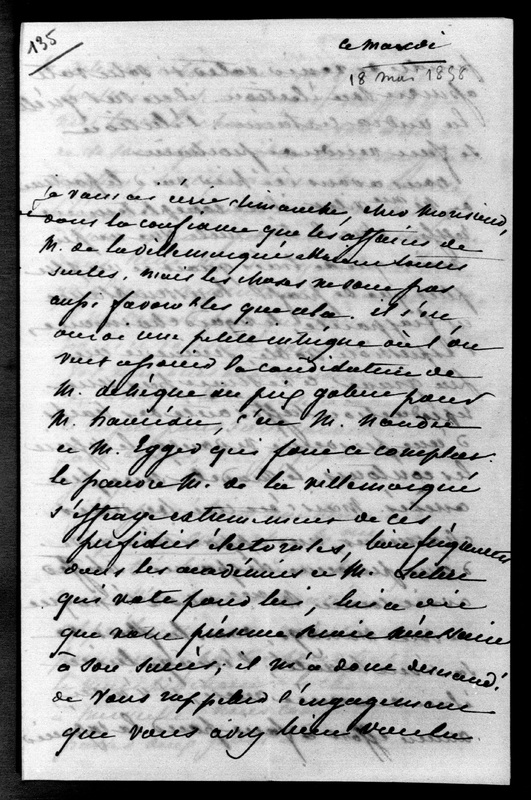 135
ce mardi
18 mai 1858
je vous ai écrit dimanche, cher Monsieur,
dans la confiance que les affaires de
M. de la Villemarqué étaient toutes
seules. mais les choses ne sont pas
aussi favorables que cela. il s'en
une petite intrigue où l'on
veut la candidature de
M. dehèque au pour
M. hauréau, c'est M. Naudet
et M. Egger qui font ce complot.
le pauvre M. de la Villemarqué
s'effraye extrêmement de ces
perfidies électorales, bien fréquentes
dans les académies et M.
qui vote pour lui, lui a dit
que votre présence serait nécessaire
à son succès; il m'a donc demandé
de vous rappeler l'engagement
que vous avez bien voulu